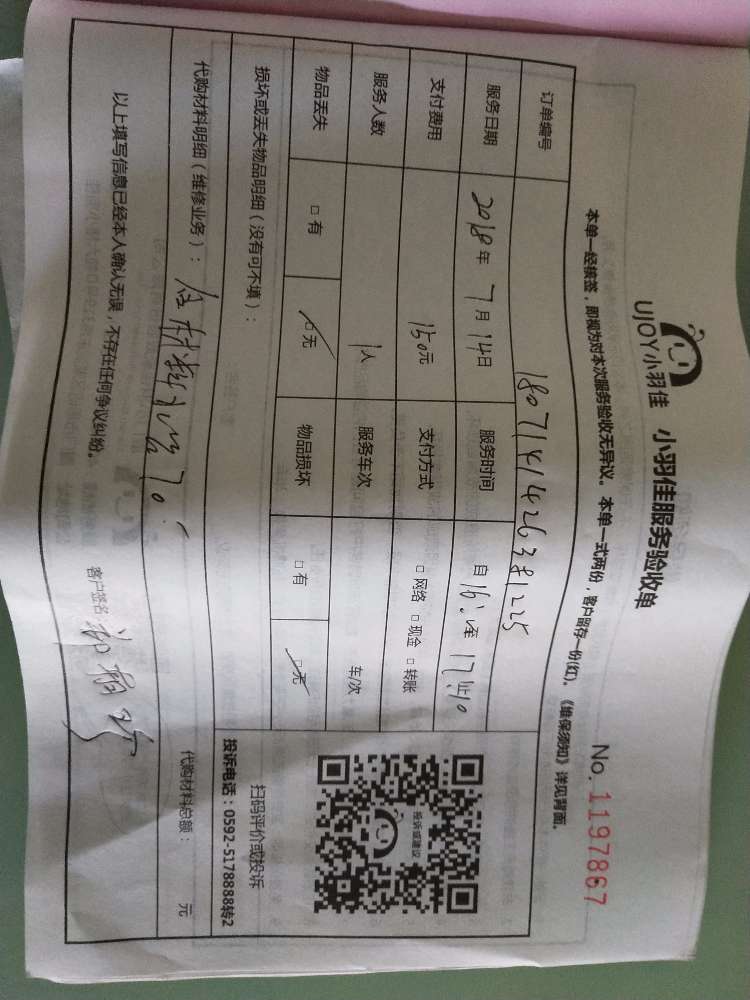 UJOY小羽佳 小羽佳服务验收单
No. 1197867
本单一经接签，即视为对本次服务验收无异议。本单一式两份，客户留存一份(红)。《维保须知》详见背面。
订单编号
服务日期 2018年 7月14日 服务时间 自 16: 至 17:40
支付费用 150元 支付方式 □网络 □现金 □转账
服务人数 1人 服务车次 车/次
物品丢失 □有 □无 物品损坏 □有 □无
损坏或丢失物品明细（没有可不填）：
代购材料明细（维修业务）：
代购材料总额： 元
以上填写信息已经本人确认无误，不存在任何争议纠纷。
客户签名
投诉或建议
扫码评价或投诉
投诉电话：0592-5178888转2